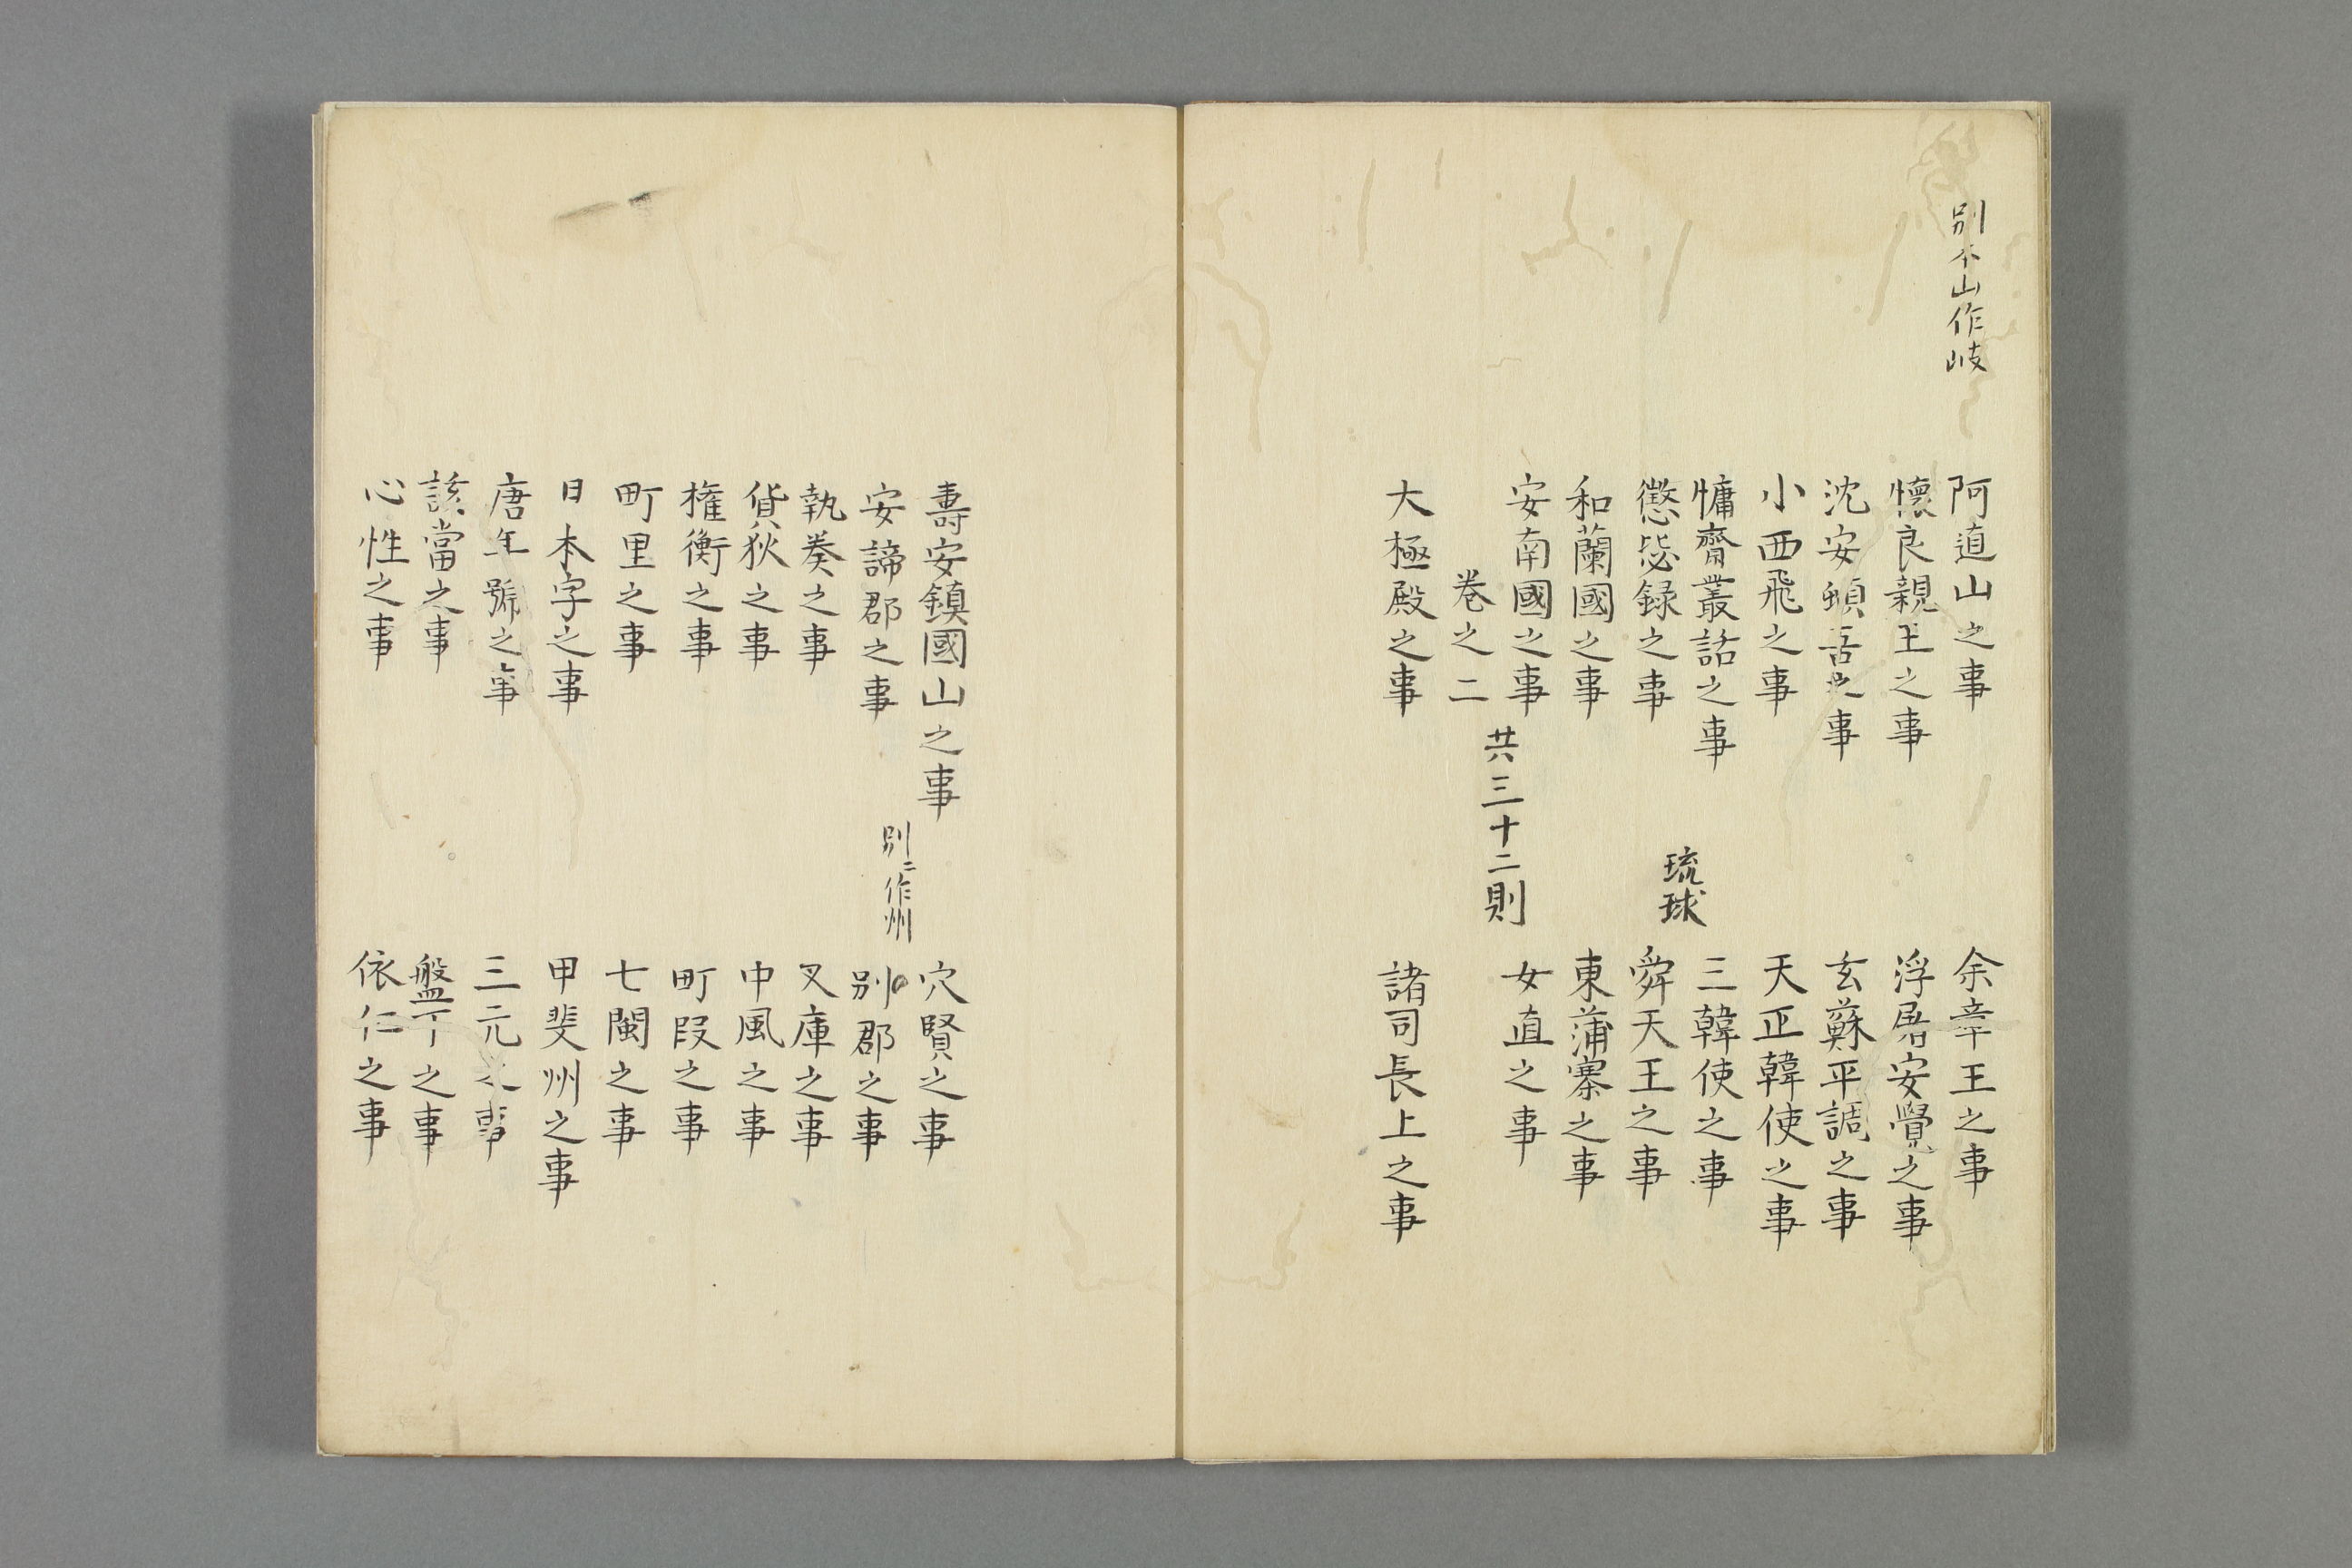 別本山作岐
阿直山之事
余章王之事
懷良親王之事
浮屠安覺之事
沈安頓吾之事
玄蘇平調之事
小西飛之事
天正韓使之事
慵齋叢話之事
三韓使之事
懲毖録之事
琉球
舜天王之事
和蘭國之事
東蒲寨之事
安南國之事
女直之事
卷之二
共三十二則
大極殿之事
諸司長上之事
壽安鎮國山之事
穴賢之事
安諦郡之事
別ニ作州
別郡之事
執奏之事
叉庫之事
貨狄之事
中風之事
権衡之事
町段之事
町里之事
七閩之事
日本字之事
甲斐州之事
唐年號之事
三元之事
該當之事
盤丁之事
心性之事
依仁之事